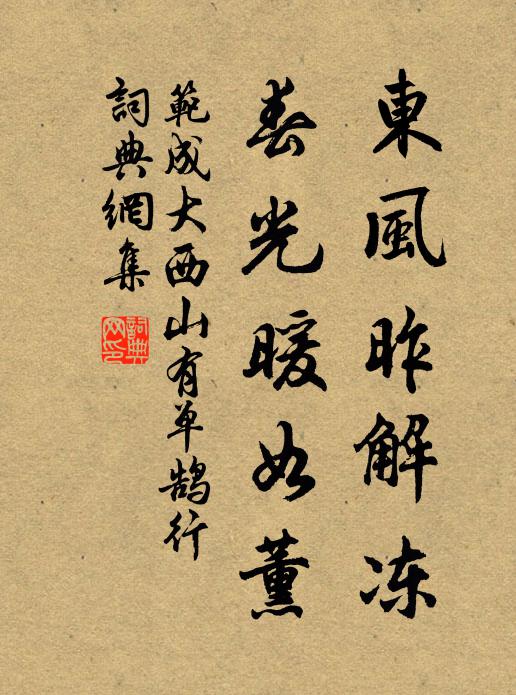 東風昨解冻
春光暖如薰
範成大西山有单鹄行
詞典網集
詞典
网印